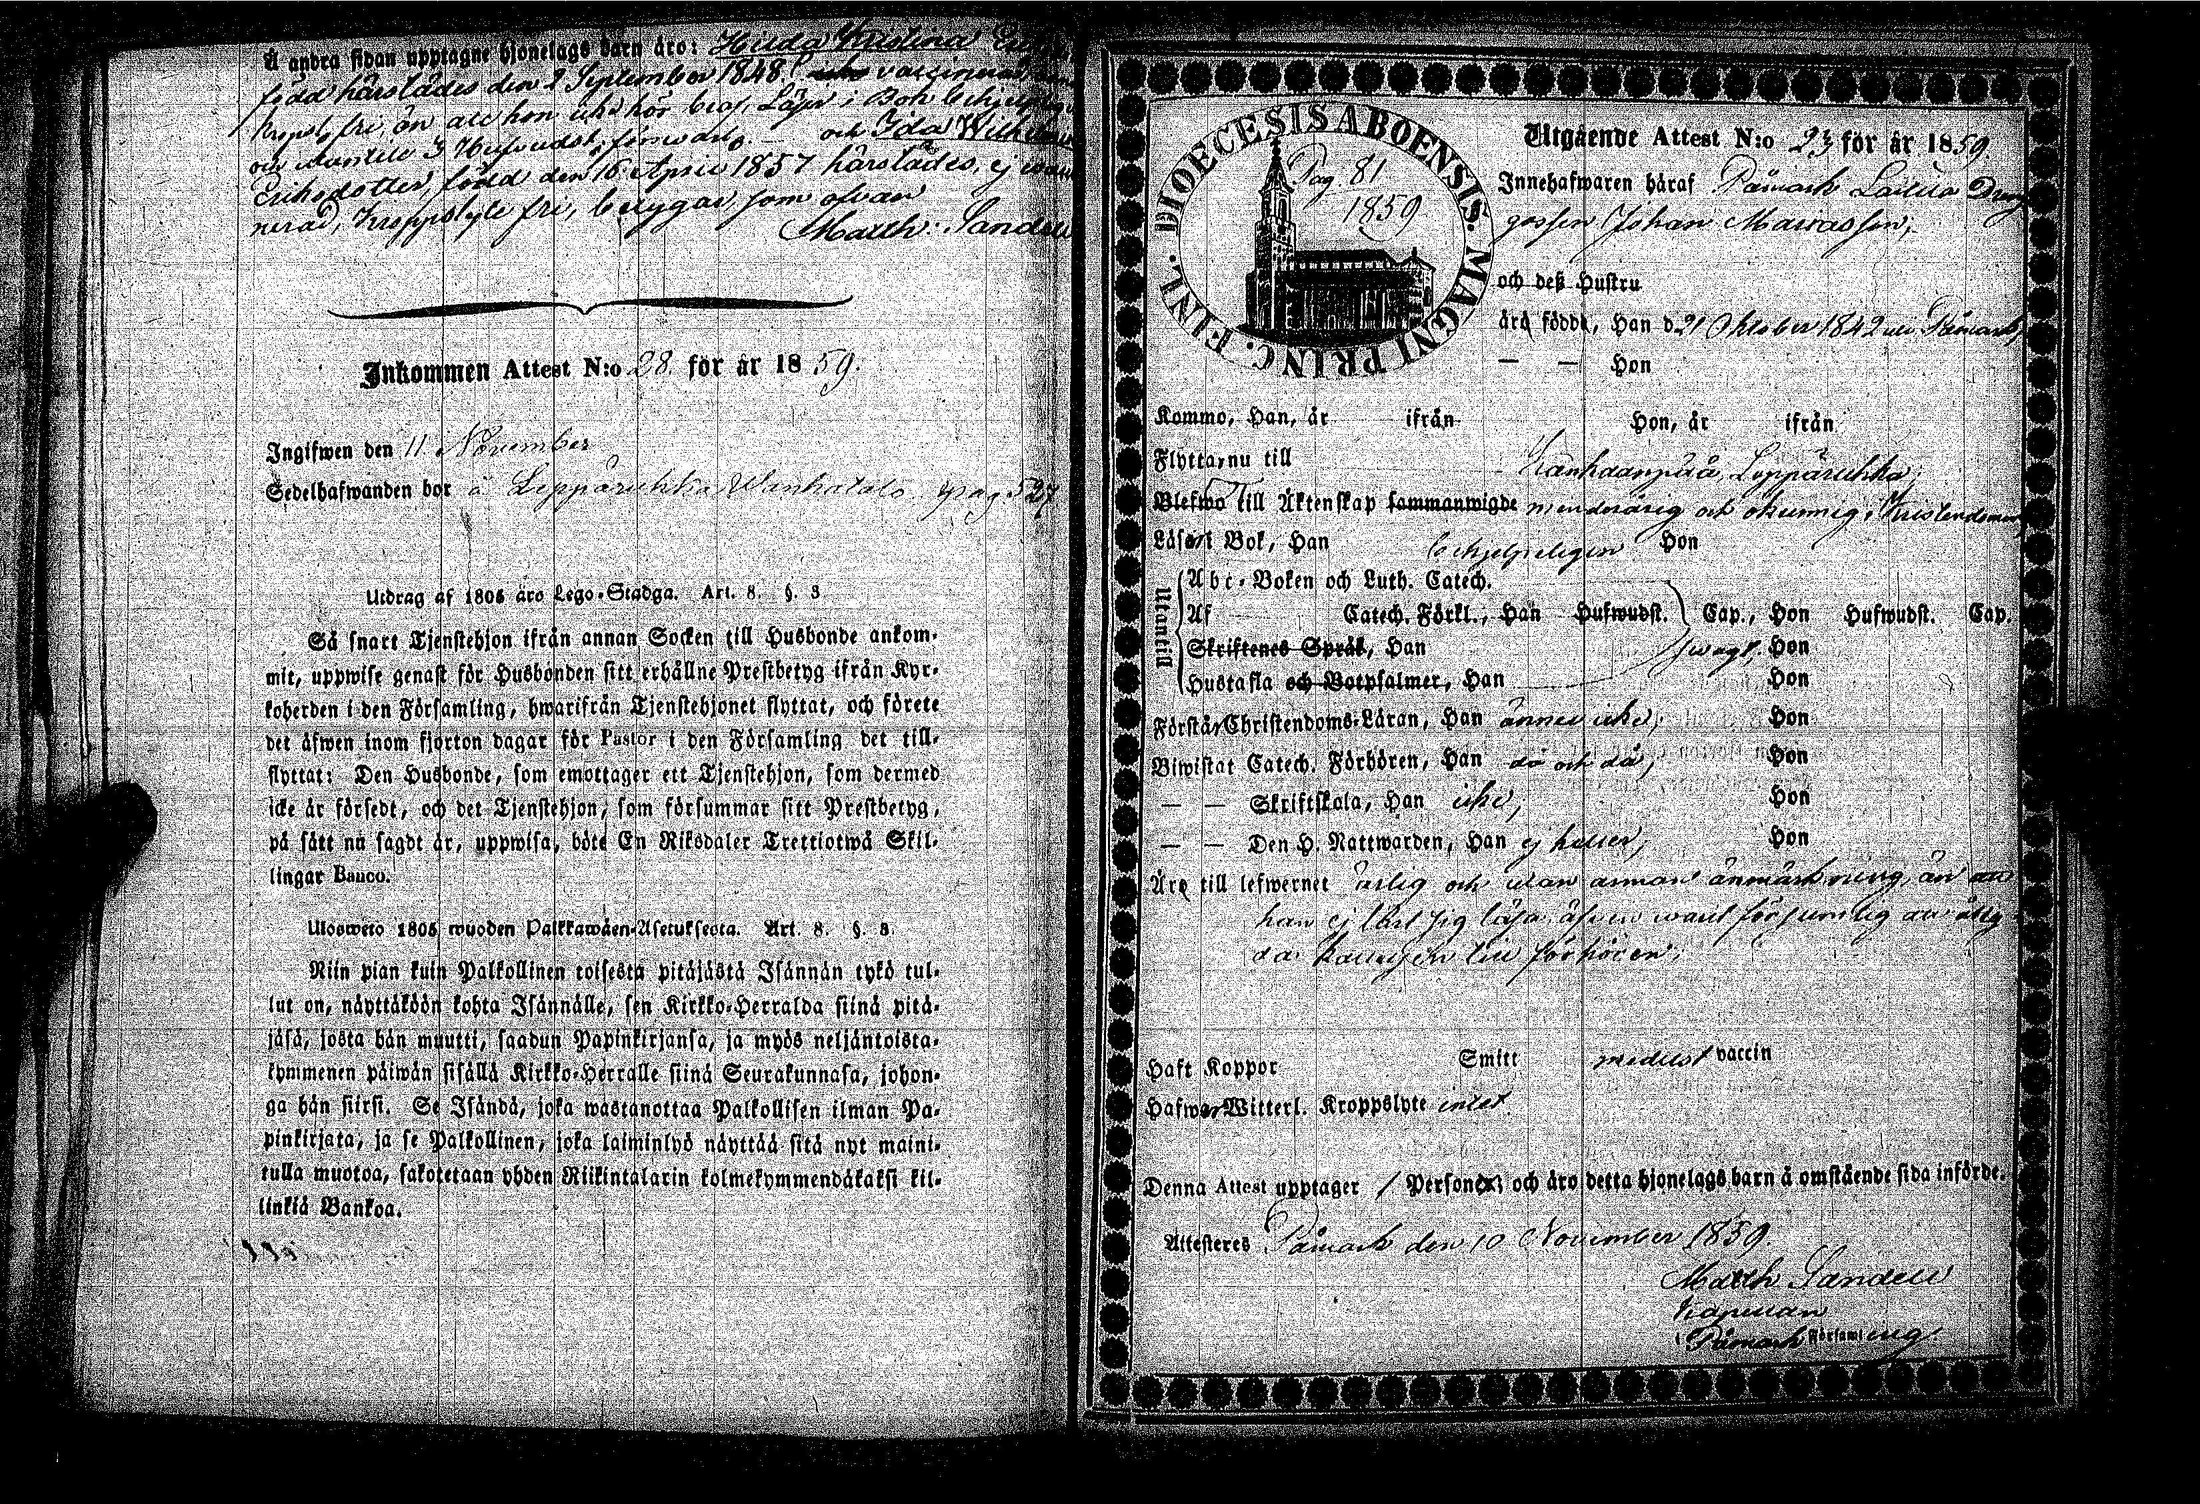 Å andra sidan upptagne hjonelags barn äro: Hilda Kristina
född härstädes den 2 September 1848, vaccinerad
fri, än att hon icke hör bra, Läser i Bok behjelpligen
och utantill 3 Hufvudst. försvarlig. — och Ida Wilhelmina
Eriksdotter, född den 16 April 1857 härstädes, ej vacci-
nerad, Kroppslyte fri, betygar som ofvan
Matth: Sandell
Inkommen Attest N:o 28 för år 1859.
Ingifwen den 11 November
Sedelhafwanden bor å Leppäruhka Wanhatalo pag. 527
Utdrag af 1805 års Lego-Stadga. Art. 8. §. 3
Så snart Tjenstehjon ifrån annan Socken till Husbonde ankom-
mit, uppwise genast för Husbonden sitt erhållne Prestbetyg ifrån Kyr-
koherden i den Församling, hwarifrån Tjenstehjonet flyttat, och förete
det äfwen inom fjorton dagar för Pastor i den Församling det till-
flyttat: Den Husbonde, som emottager ett Tjenstehjon, som dermed
icke är försedt, och det Tjenstehjon, som försummar sitt Prestbetyg,
på sätt nu sagdt är, uppwisa, böte En Riksdaler Trettiotwå Skil-
lingar Banco.
Ulosweto 1805 wuoden Palkkawäen-Asetuksesta. Art. 8. §. 3.
Niin pian kuin Palkollinen toisesta pitäjästä Isännän tykö tul-
lut on, näyttäköön kohta Isännälle, sen Kirkko-Herralda siinä pitä-
jäsä, josta hän muutti, saadun Papinkirjansa, ja myös neljäntoista-
kymmenen päiwän sisällä Kirkko-Herralle siinä Seurakunnasa, johon-
ga hän siirsi. Se Isändä, joka wastanottaa Palkollisen ilman Pa-
pinkirjata, ja se Palkollinen, joka laiminlyö näyttää sitä nyt maini-
tulla muotoa, sakotetaan yhden Riikintalarin kolmekymmendäkaksi kil-
linkiä Bankoa.
DIOECESIS ABOENSIS. MAGNI PRINC. FINL.
Pag. 81
1859
Utgående Attest N:o 23 för år 1859.
Innehafwaren häraf Påmark Laitila Dreng
gossen Johan Mattsson,
och deß Hustru
äro födde, Han d. 21 Oktober 1842 uti Påmark,
— — Hon
Kommo, Han, år ifrån Hon, år ifrån
Flyttar nu till Kankaanpää, Leppäruhka,
Blefwo till Äktenskap sammanwigde minderårig och okunnig i Kristendomen
Läser i Bok, Han behjelpeligen Hon
Utantill
Abc-Boken och Luth. Catech.
Af Catech. Förkl., Han Hufwudst. Cap., Hon Hufwudst. Cap.
Skriftenes Språk, Han swagt, Hon
Hustafla och Botpsalmer, Han Hon
Förstår Christendoms-Läran, Han ännu icke, Hon
Biwistat Catech. Förhören, Han då och då, Hon
— — Skriftskola, Han icke, Hon
— — Den H. Nattwarden, Han ej heller, Hon
Äro till lefwernet ärlig och utan annan anmärkning, än att
han ej lärt sig läsa, äfven varit försumlig att
till förhören.
Haft Koppor Smitt medelst vaccin
Hafwer Witterl. Kroppslyte intet.
Denna Attest upptager 1 Person, och äro detta hjonelags barn å omstående sida införde.
Attesteres Påmark den 10 November 1859.
Matth Sandell
Kapellan
i Påmark Församling.